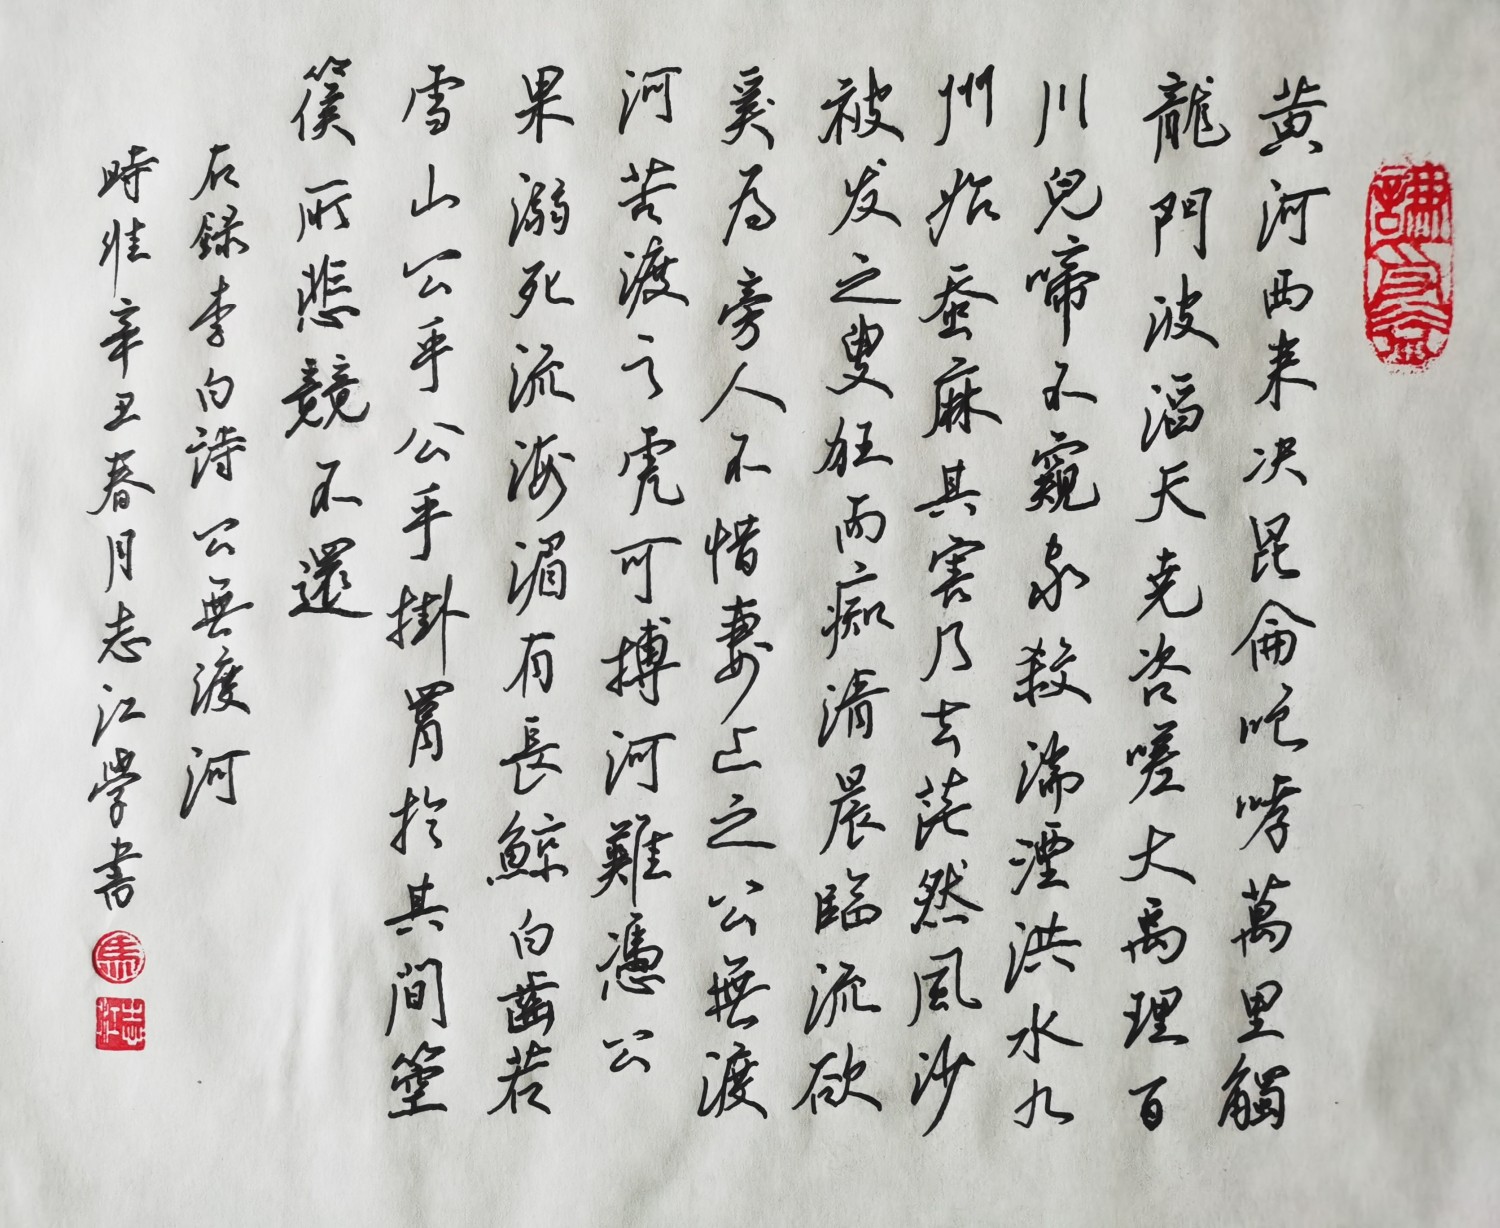 黄河西来决昆侖咆哮萬里觸
龍門波滔天堯咨嗟大禹理百
川兒啼不窺家殺湍湮洪水九
州始蚕麻其害乃去茫然風沙
被发之叟狂而痴清晨臨流欲
奚為旁人不惜妻止之公無渡
河苦渡之虎可搏河難憑公
果溺死流海湄有長鯨白齒若
雪山公乎公乎掛罥於其間箜
篌所悲竟不還
右録李白詩公無渡河
時惟辛丑春月志江學書
馬
志江